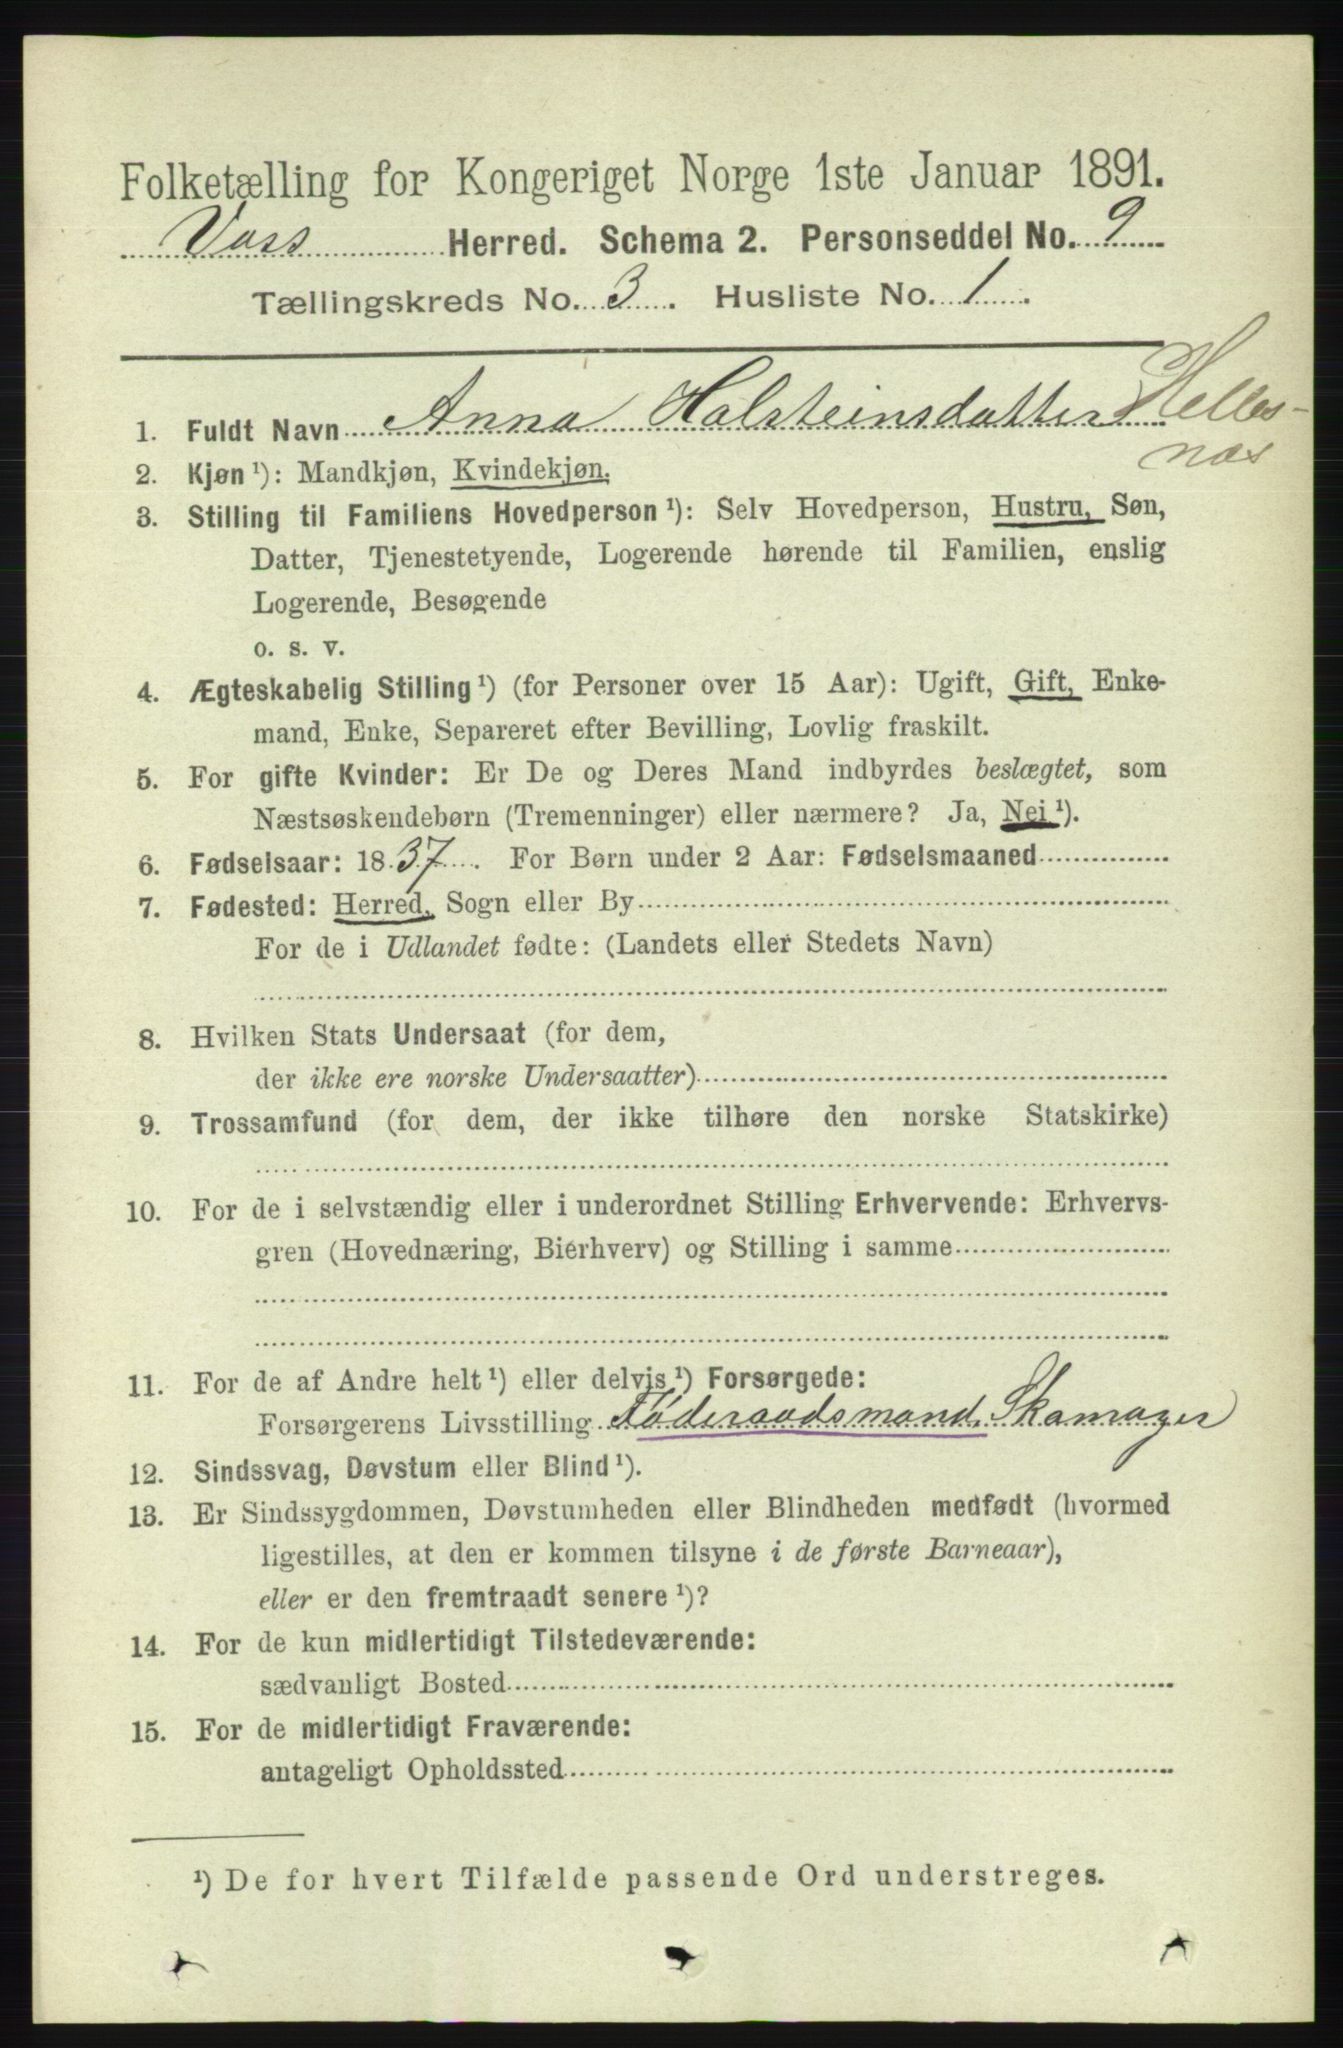 Folketælling for Kongeriget Norge 1ste Januar 1891.
Voss Herred. Schema 2. Personseddel No. 9
Tællingskreds No. 3. Husliste No. 1.
1. Fuldt Navn Anna Halsteinsdatter Helles-
næs
2. Kjøn ¹): Mandkjøn, Kvindekjøn.
3. Stilling til Familiens Hovedperson ¹): Selv Hovedperson, Hustru, Søn,
Datter, Tjenestetyende, Logerende hørende til Familien, enslig
Logerende, Besøgende
o. s. v.
4. Ægteskabelig Stilling ¹) (for Personer over 15 Aar): Ugift, Gift, Enke-
mand, Enke, Separeret efter Bevilling, Lovlig fraskilt.
5. For gifte Kvinder: Er De og Deres Mand indbyrdes beslægtet, som
Næstsøskendebørn (Tremenninger) eller nærmere? Ja, Nei ¹).
6. Fødselsaar: 1837. For Børn under 2 Aar: Fødselsmaaned
7. Fødested: Herred, Sogn eller By
For de i Udlandet fødte: (Landets eller Stedets Navn)
8. Hvilken Stats Undersaat (for dem,
der ikke ere norske Undersaatter)
9. Trossamfund (for dem, der ikke tilhøre den norske Statskirke)
10. For de i selvstændig eller i underordnet Stilling Erhvervende: Erhvervs-
gren (Hovednæring, Bierhverv) og Stilling i samme
11. For de af Andre helt ¹) eller delvis ¹) Forsørgede:
Forsørgerens Livsstilling Føderaadsmand. Skomager
12. Sindssvag, Døvstum eller Blind ¹).
13. Er Sindssygdommen, Døvstumheden eller Blindheden medfødt (hvormed
ligestilles, at den er kommen tilsyne i de første Barneaar),
eller er den fremtraadt senere ¹)?
14. For de kun midlertidigt Tilstedeværende:
sædvanligt Bosted
15. For de midlertidigt Fraværende:
antageligt Opholdssted
¹) De for hvert Tilfælde passende Ord understreges.